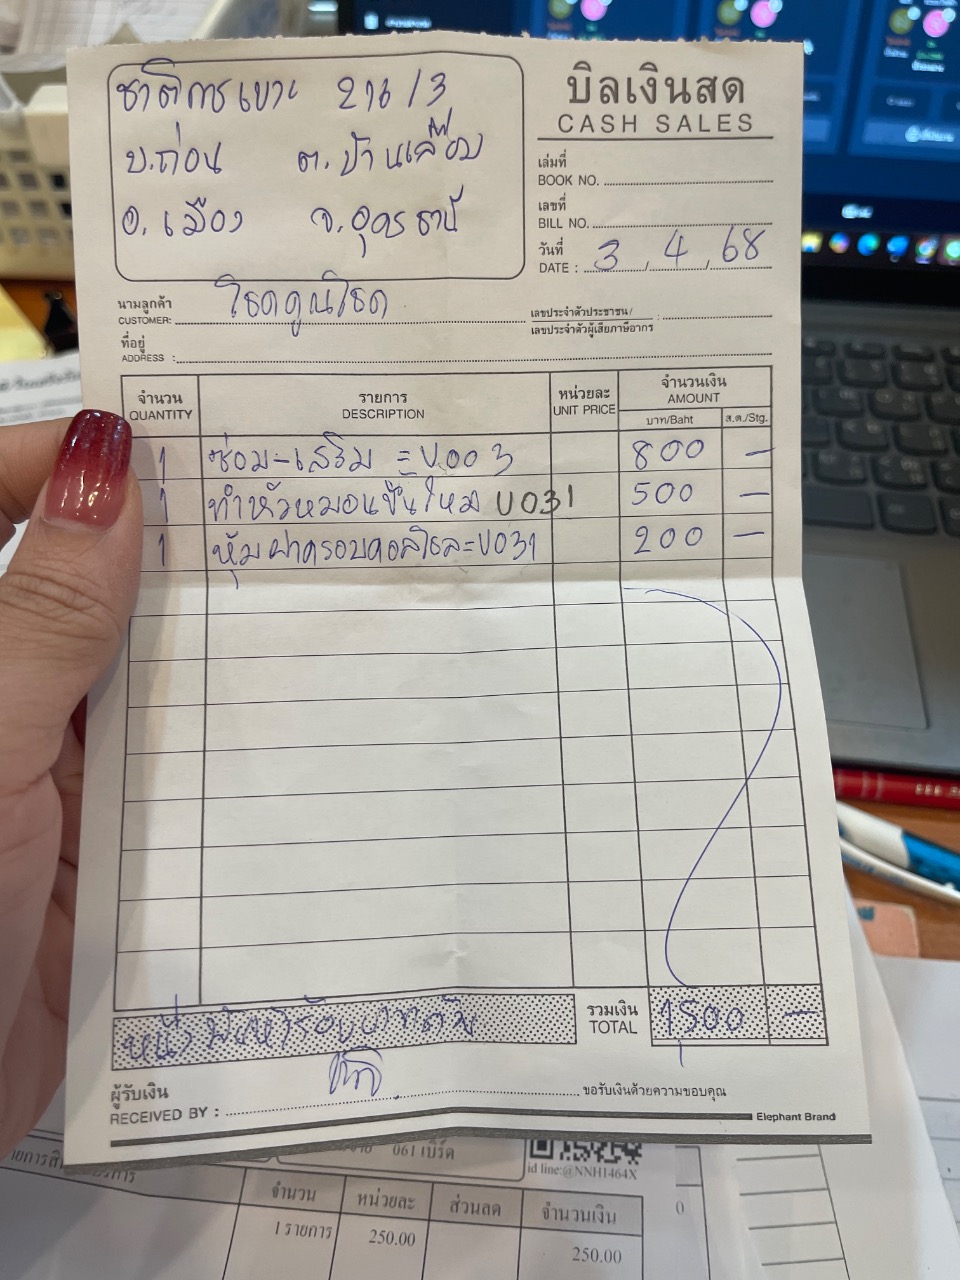 ชาติการเบาะ 216/3
บ.ถ่อน ต.บ้านเลื่อม
อ.เมือง จ.อุดรธานี
บิลเงินสด
CASH SALES
เล่มที่
BOOK NO.
เลขที่
BILL NO.
วันที่
DATE : 3 , 4 , 68
นามลูกค้า
CUSTOMER: โชคคูณโชค
เลขประจำตัวประชาชน/
เลขประจำตัวผู้เสียภาษีอากร :
ที่อยู่
ADDRESS :
จำนวน รายการ หน่วยละ จำนวนเงิน
QUANTITY DESCRIPTION UNIT PRICE AMOUNT
บาท/Baht ส.ต./Stg.
1 ซ่อม-เสริม = บ003 800 -
1 ทำหัวหมอนขึ้นใหม่ บ031 500 -
1 หุ้มฝาครอบคอลโซล=บ031 200 -
หนึ่งพันห้าร้อยบาทถ้วน
รวมเงิน
TOTAL 1500 -
ผู้รับเงิน
RECEIVED BY : ชาติ
ขอรับเงินด้วยความขอบคุณ
Elephant Brand
061 เบิร์ด
id line:@NNH1464X
จำนวน หน่วยละ ส่วนลด จำนวนเงิน
1 รายการ 250.00 250.00
0